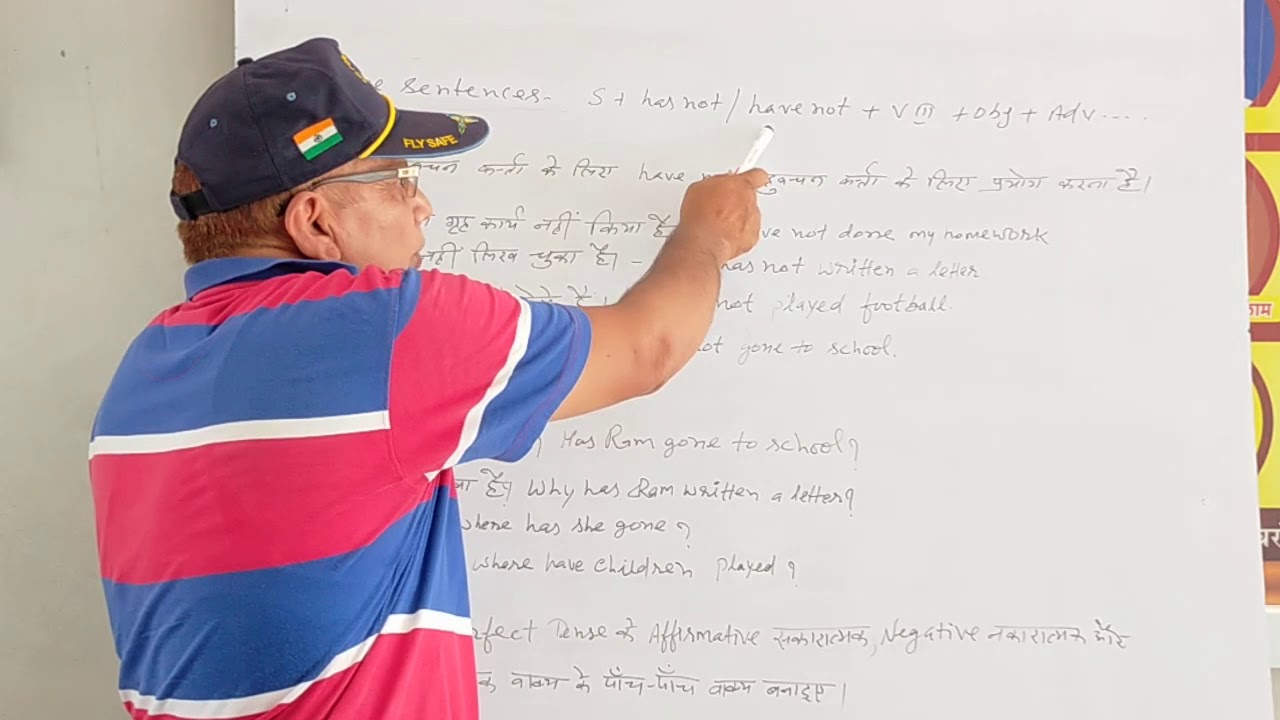 sentences- S + has not / have not + V III + Obj + Adv....
FLY SAFE
कर्त्ता के लिए have कर्त्ता के लिए प्रयोग करना है।
गृह कार्य नहीं किया है not done my homework
नहीं लिख चुका है। - has not written a letter
not played football.
gone to school.
Has Ram gone to school?
है। Why has Ram written a letter?
where has she gone?
where have children played?
Tense के Affirmative सकारात्मक, Negative नकारात्मक और
वाक्य के पाँच-पाँच वाक्य बनाइए।